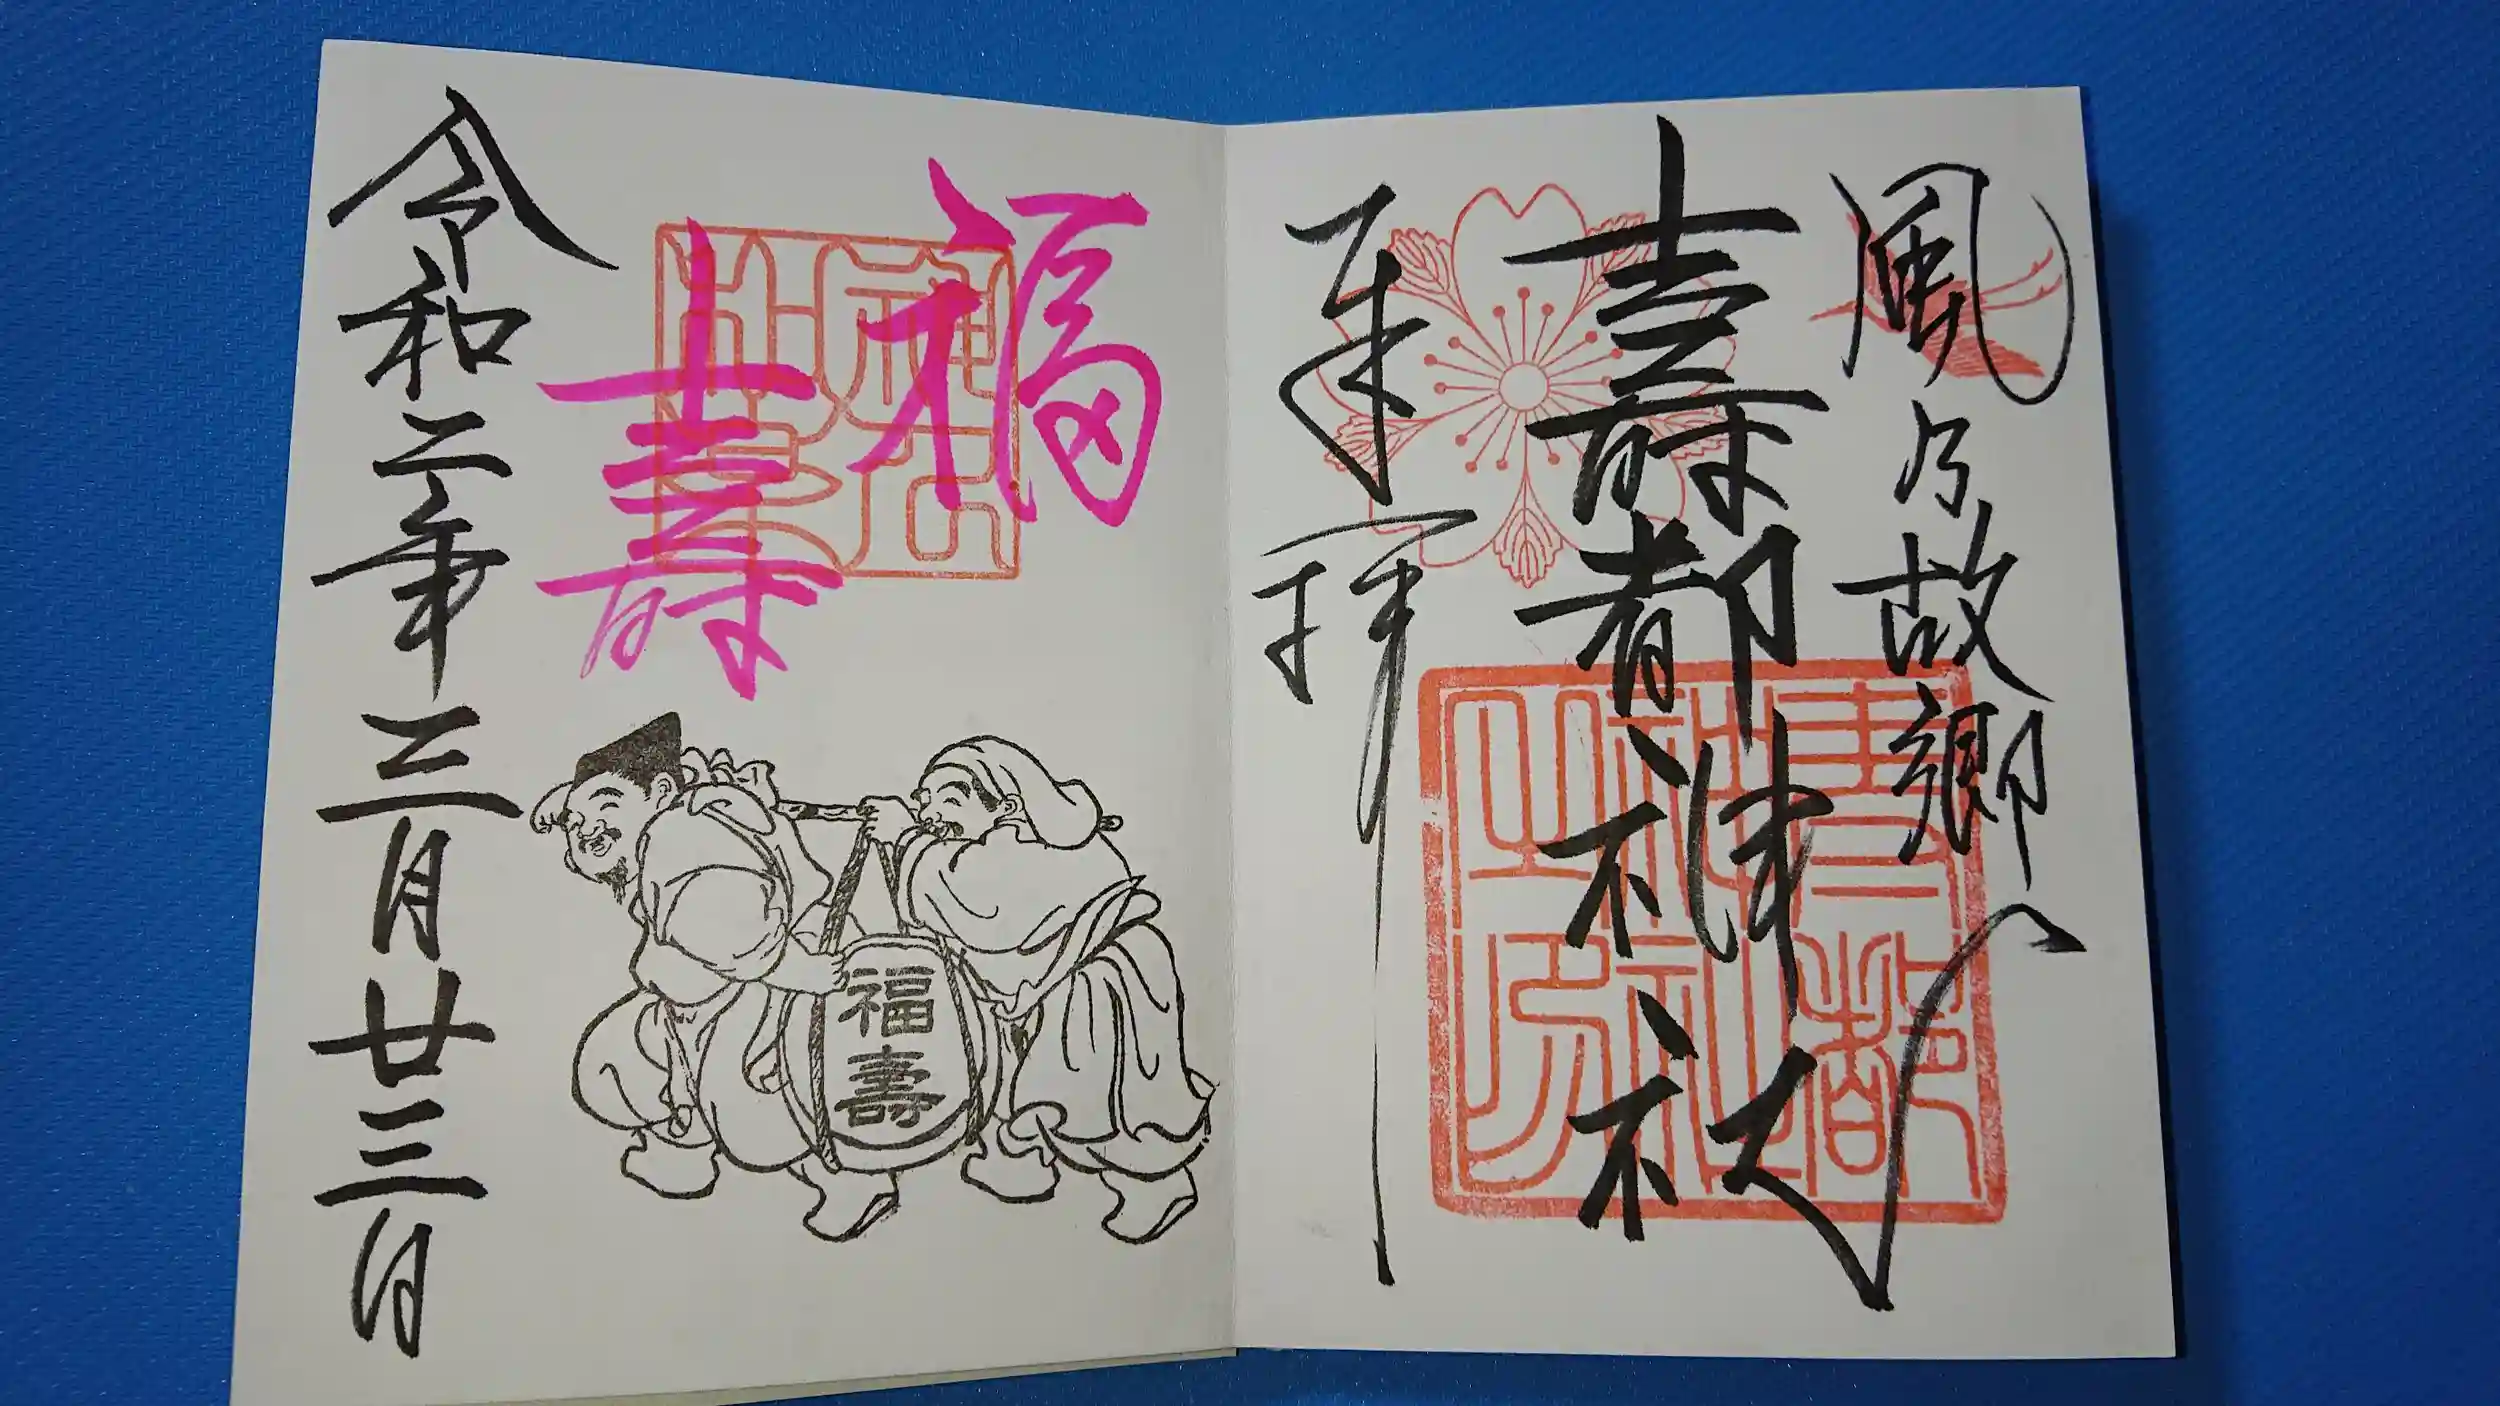 風乃故郷へ
壽都神社
奉拝
壽都神社之印
福
壽
令和二年三月廿三日
福壽